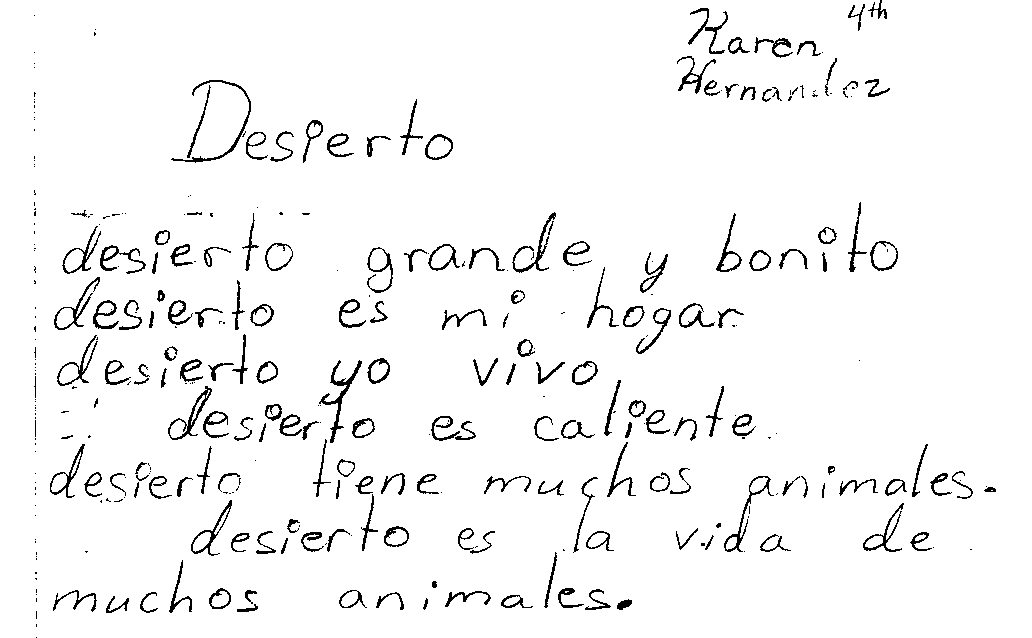 Karen 4th
Hernandez
Desierto
desierto grande y bonito
desierto es mi hogar
desierto yo vivo
desierto es caliente
desierto tiene muchos animales.
desierto es la vida de
muchos animales.